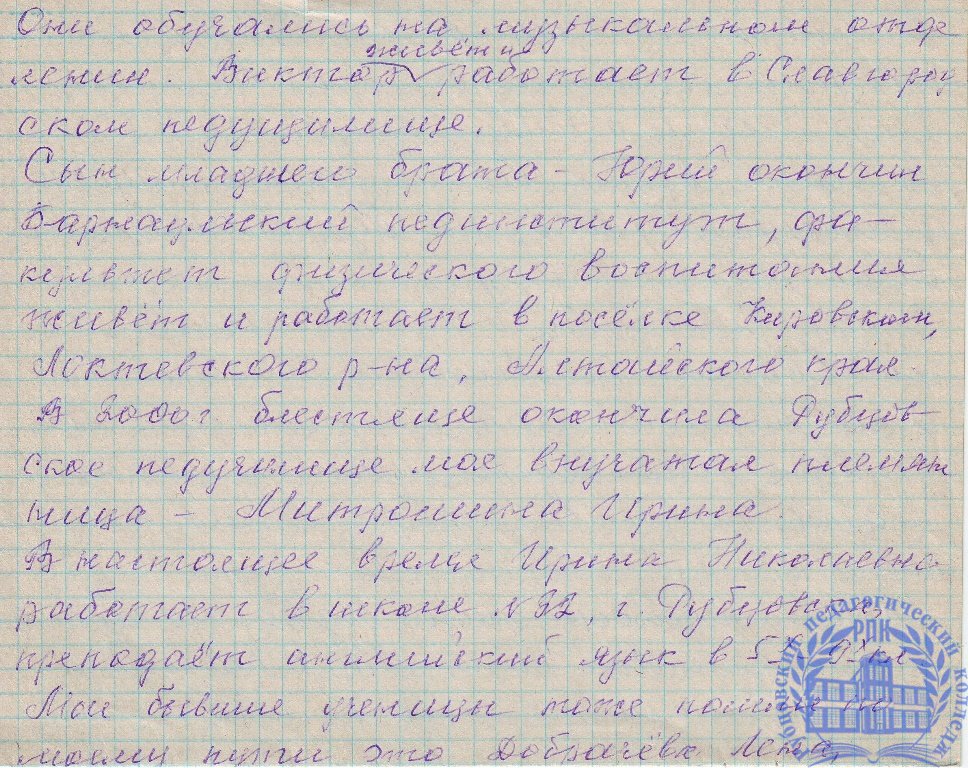 Они обучались на музыкальном отде
лении. Виктор живёт и работает в Славгород
ском педучилище.
Сын младшего брата - Юрий окончил
Барнаульский пединститут, фа-
культет физического воспитания
живёт и работает в посёлке Кировском,
Локтевского р-на, Алтайского края.
В 2000г блестяще окончила Рубцов
ское педучилище моя внучатая племян
ница - Митрошина Ирина.
В настоящее время Ирина Николаевна
работает в школе №32, г. Рубцовска,
преподаёт английский язык в 5 9 кл
Мои бывшие ученицы тоже пошли по
моему пути это Добрачёва Лена,
Рубцовский педагогический колледж
РПК